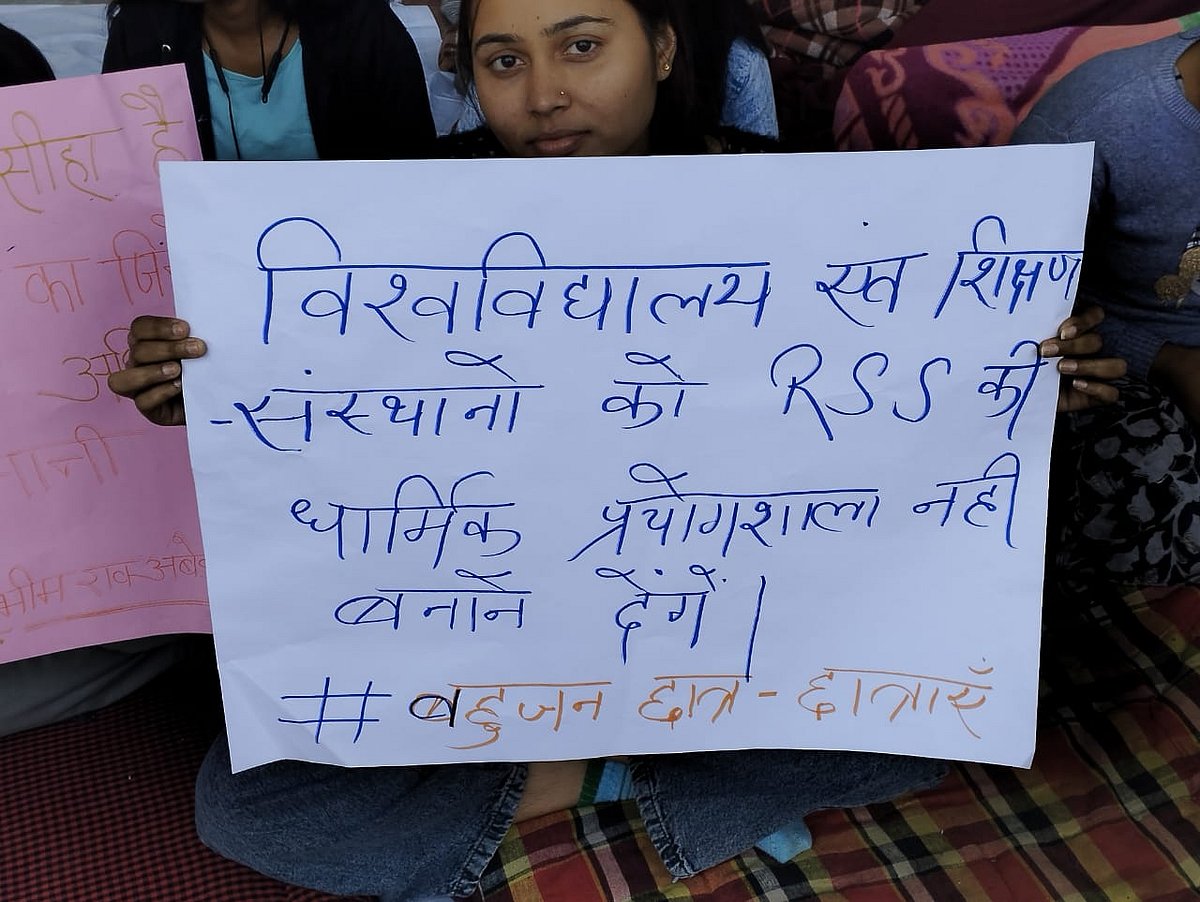 सीहा है
का जिं
मानी
भीम राव अबे
विश्वविद्यालय स्त शिक्षण
-संस्थानो को RSS की
धार्मिक प्रयोगशाला नही
बनाने देंगें।
# बहुजन छात्र - छात्राएँ